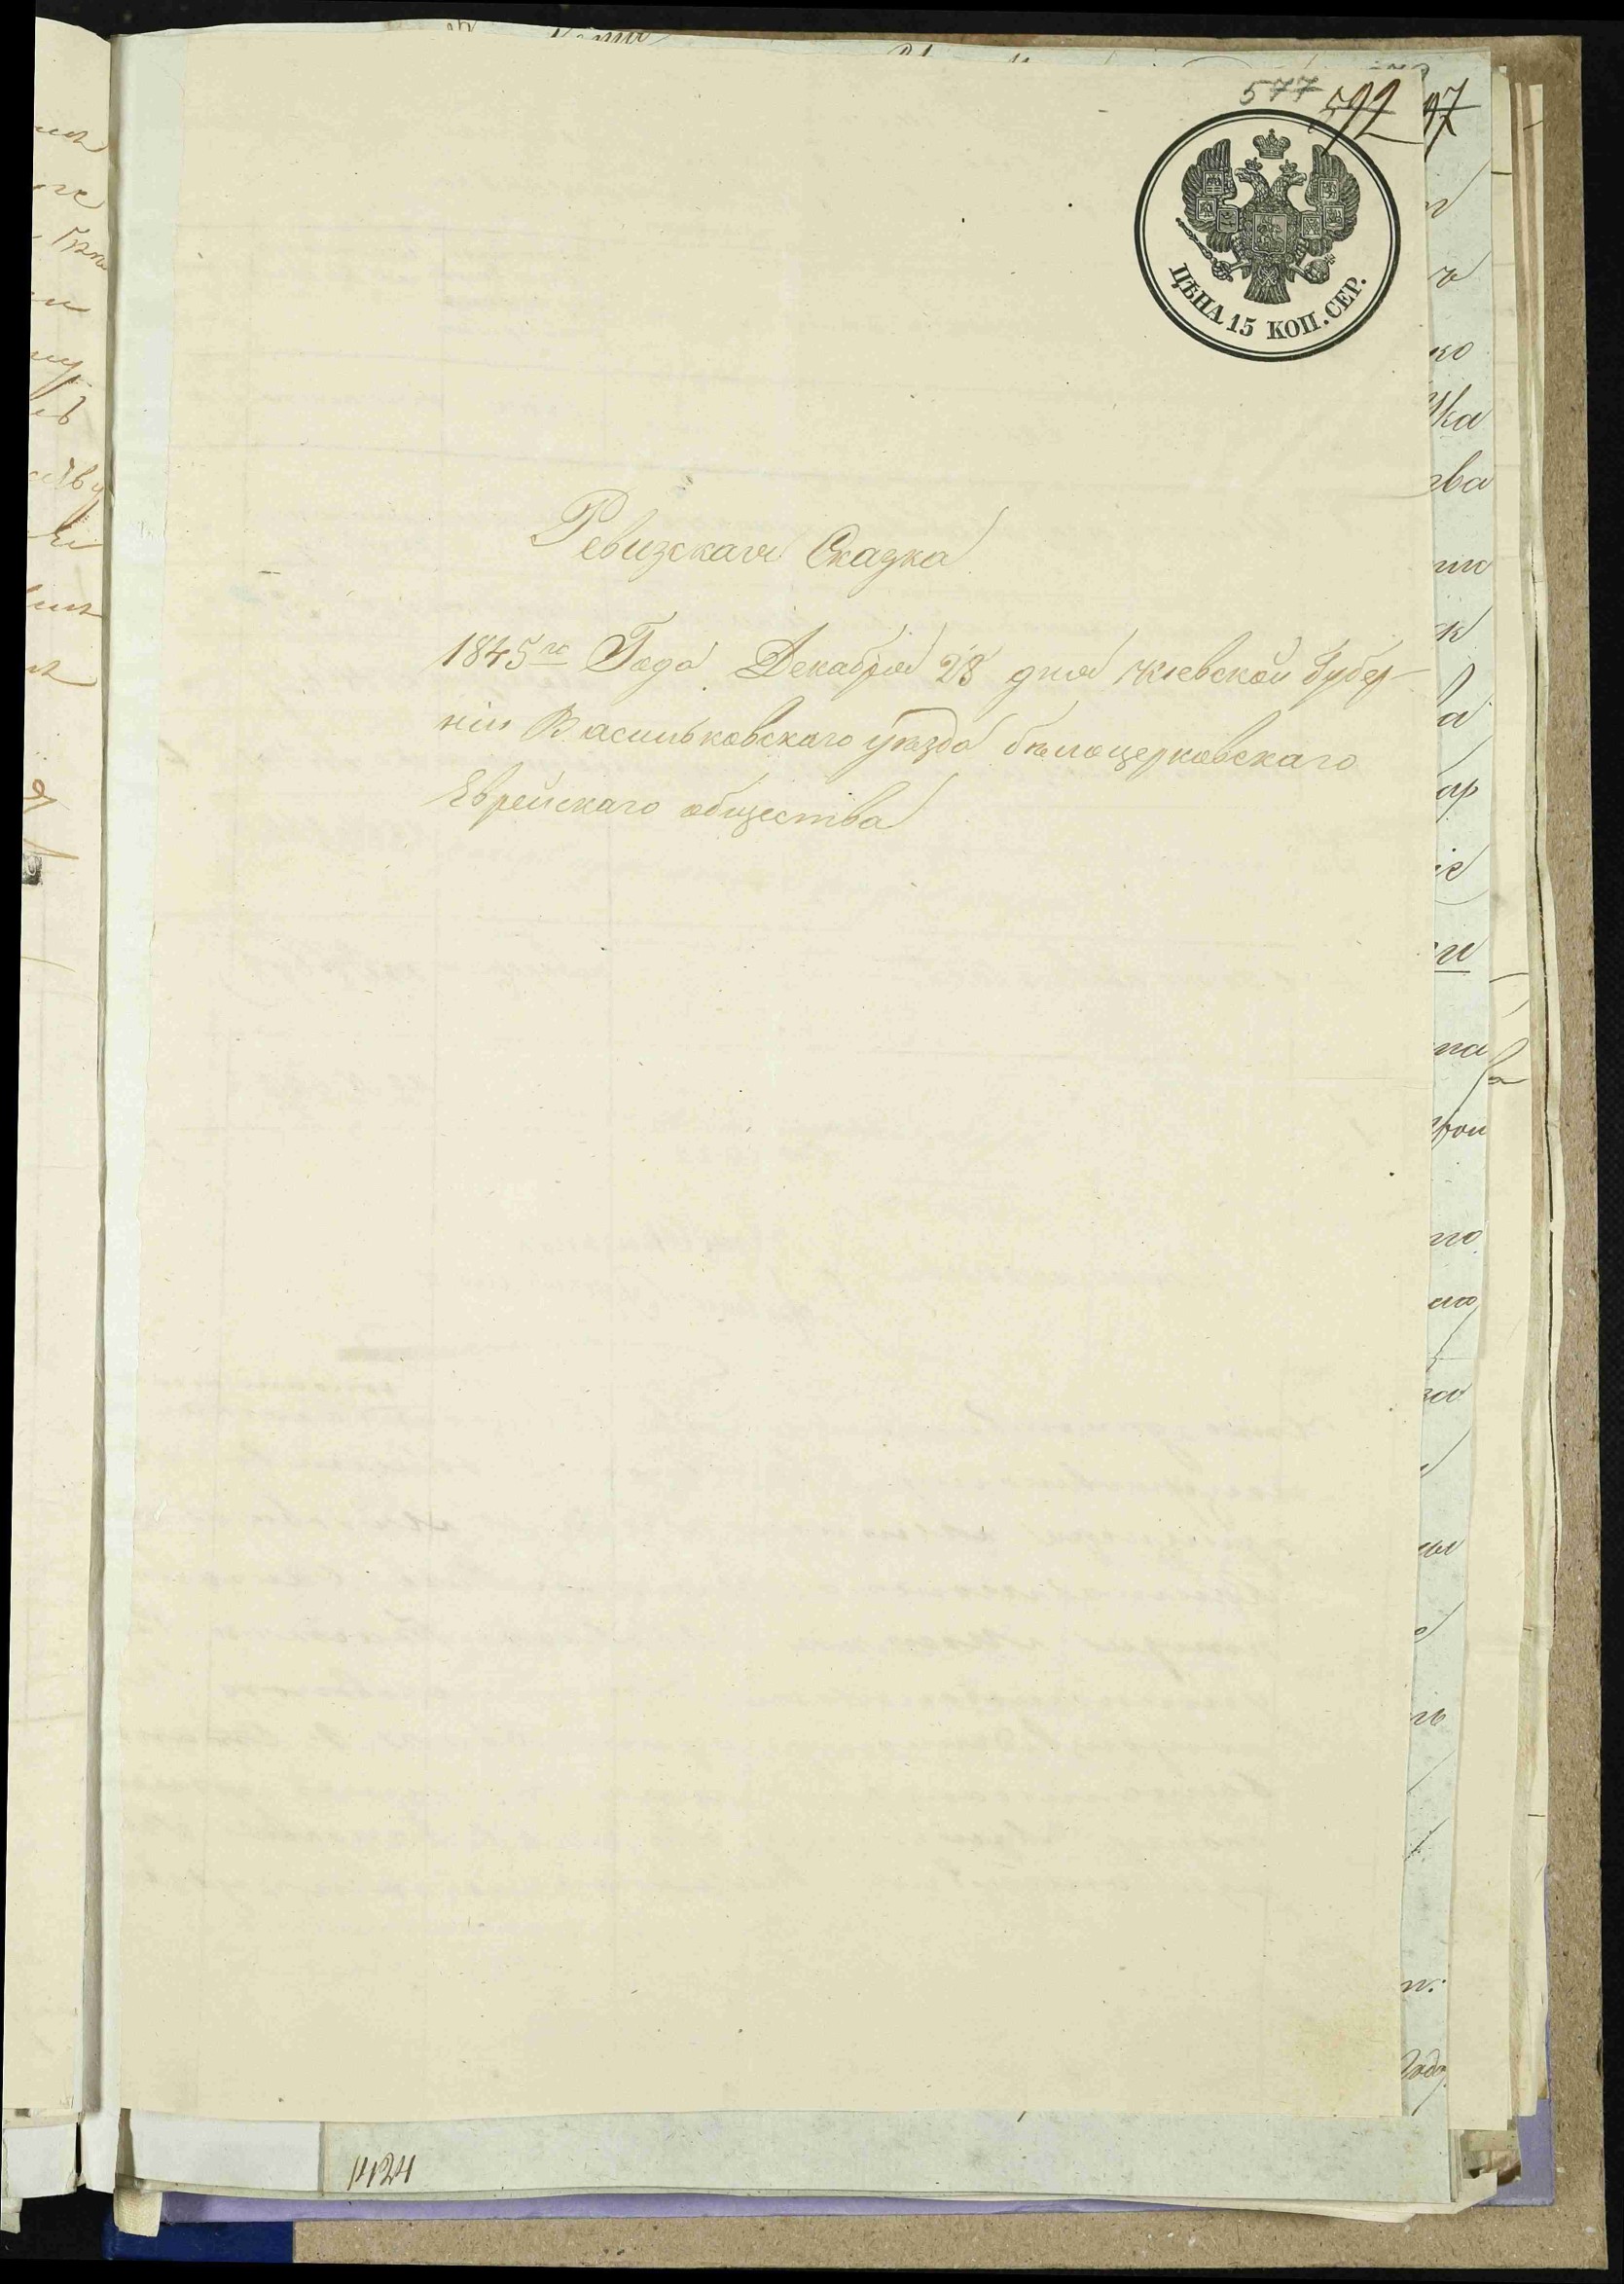 577 592 97
ЦѢНА 15 КОП. СЕР.
Ревизская Сказка
1845го Года Декабря 28 дня Кіевской Губер-
ніи Васильковскаго уѣзда бѣлоцерковскаго
Еврейскаго общества
1424